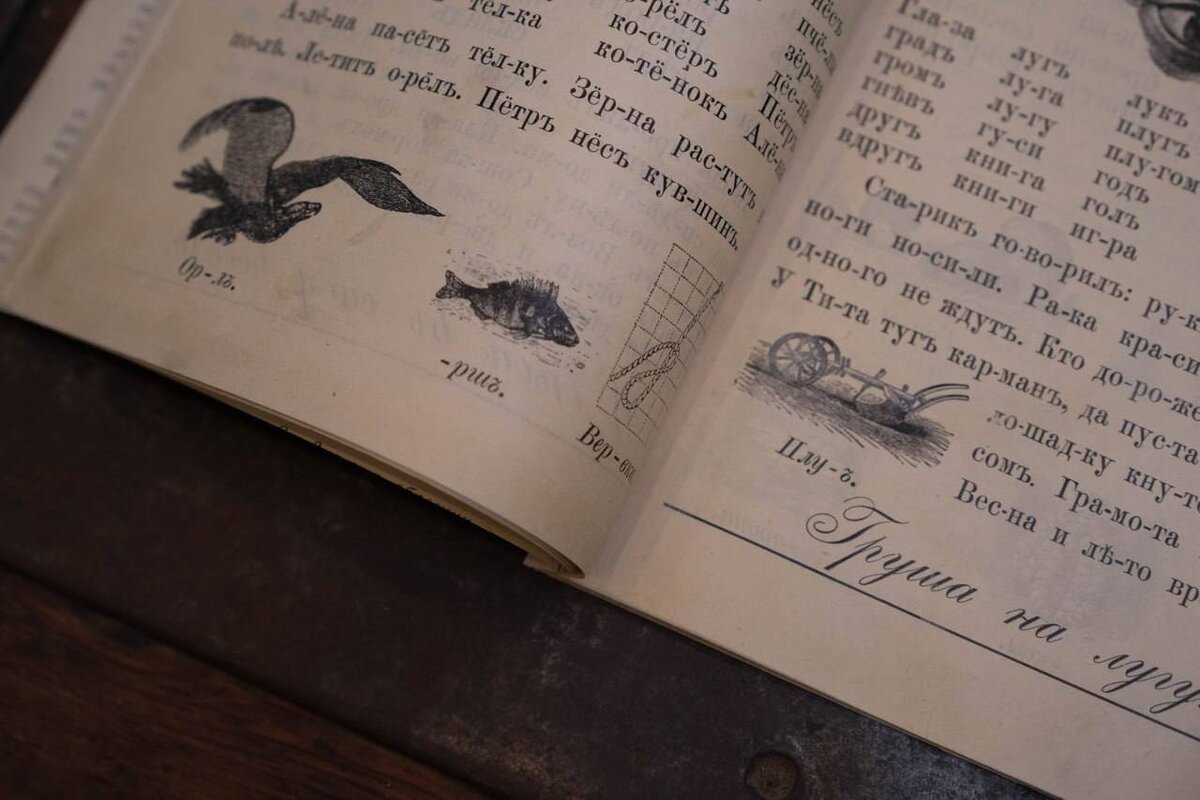 тёл-ка
ко-стёръ
зёр-на
ко-тё-нокъ
А-лё-на па-сётъ тёл-ку. Зёр-на рас-тутъ
по-лѣ. Ле-титъ о-рёлъ. Пётръ нёсъ кув-шинъ.
Ор-лъ.
-ршъ.
Вер-вка.
Гла-за лугъ лукъ
градъ лу-га плугъ
громъ лу-гу плу-гомъ
гнѣвъ гу-си годъ
другъ кни-га голъ
вдругъ кни-ги иг-ра
Ста-рикъ го-во-рилъ: ру-к
но-ги но-си-ли. Ра-ка кра-си
од-но-го не ждутъ. Кто до-ро-же
у Ти-та тугъ кар-манъ, да пус-та
ло-шад-ку кну-то
сомъ. Гра-мо-та
Вес-на и лѣ-то вр
Плу-ъ.
Груша на лугу